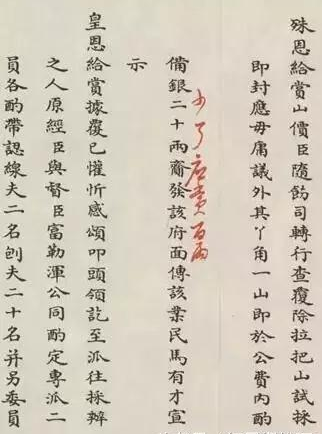 殊恩給賞山價臣隨飭司轉行查覆除拉把山試採
即封應毋庸議外其丫角一山即於公費內酌
少了应賞百両
備銀二十兩齎發該府面傳該業民馬有才宣
示
皇恩給賞據覆已懽忻感頌叩頭領訖至派往採辦
之人原經臣與督臣富勒渾公同酌定專派二
員各酌帶認線夫二名刨夫二十名并另委員